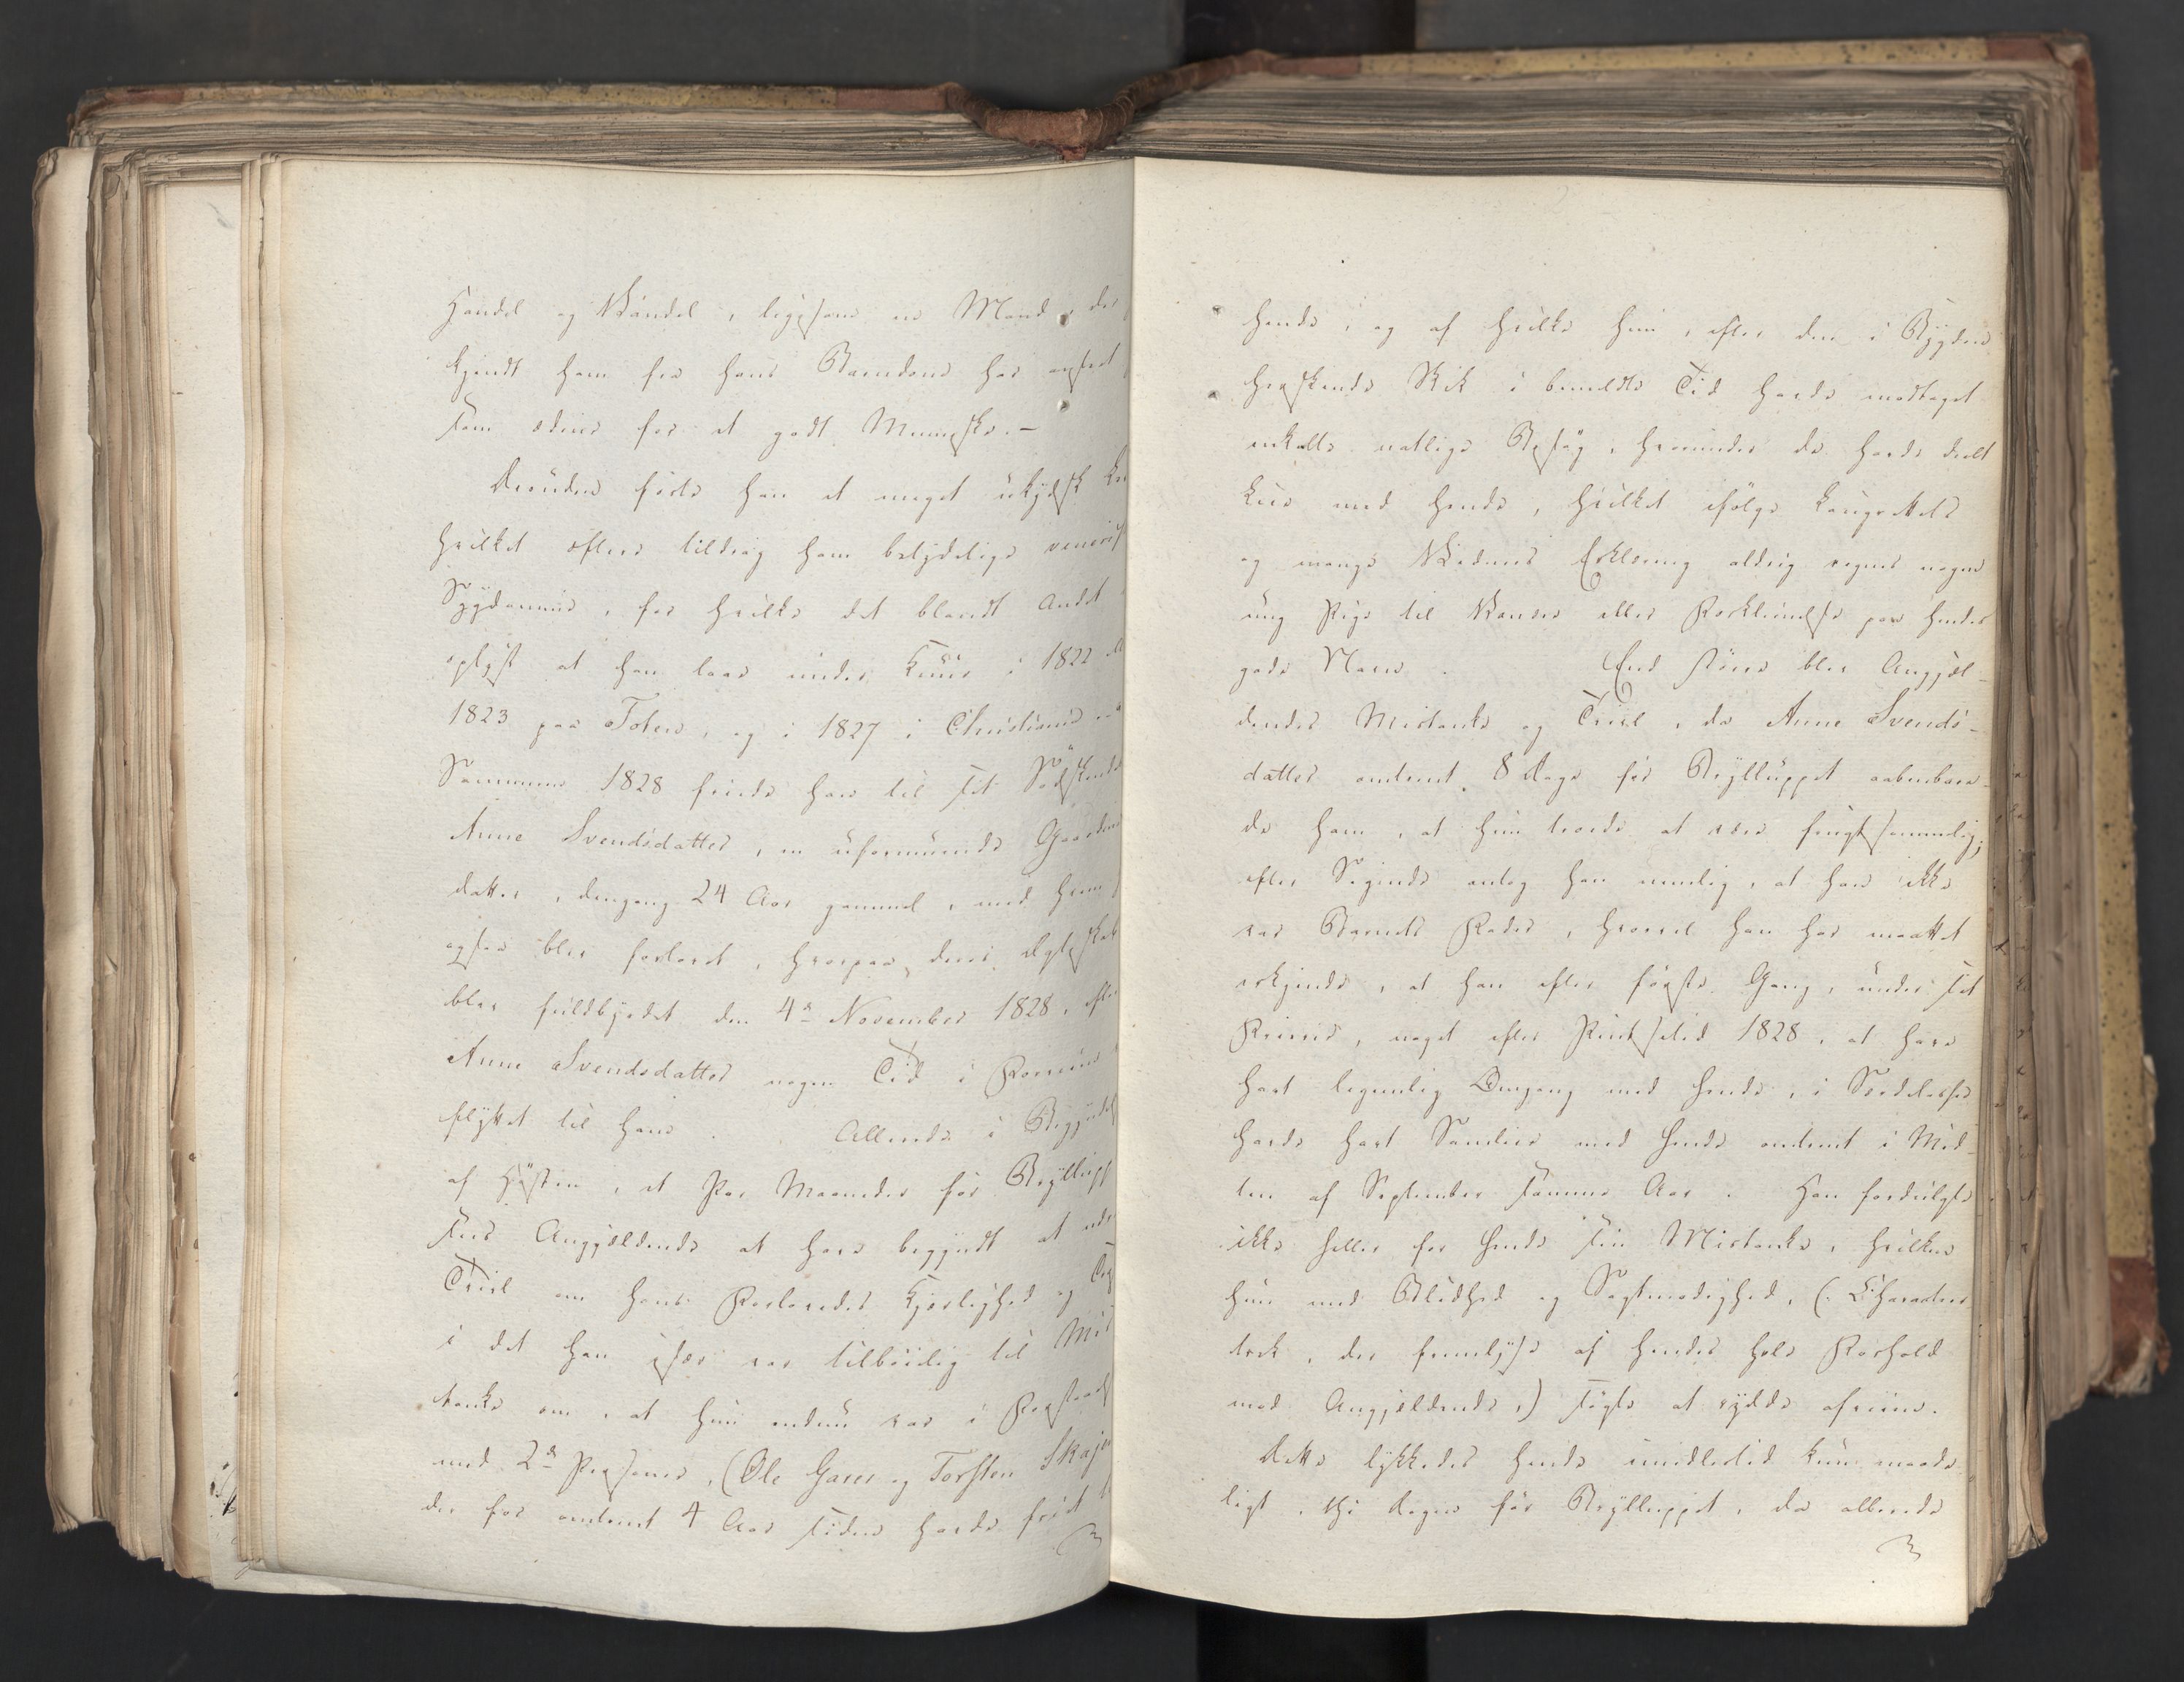 Handel og Vandel, ligesom en Mand, der
kjendt ham fra hans Barndom har anseet
som ædrue for et godt Menneske. –
Desuden førte han et meget ukydsk
hvilket oftere tildrog ham betydelige
Sygdomme, for hvilke det blandt Andet
oplyst at han laae under Kuur i 1822
1823 paa Toten, og i 1827 i Christiania
Sommeren 1828 friede han til sit Sødskende
Anne Svendsdatter, en uformuende
datter, dengang 24 Aar gammel, med hvem
ogsaa blev forlovet, hvorpaa deres Ægteskab
blev fuldbyrdet den 4de November 1828, efter
Anne Svendsdatter nogen Tid i Forveien
flyttet til ham. Allerede i Begyndel
af Høsten, et Par Maaneder før Bryllup
synes Angjældende at have begyndt at
Tvivl om hans Forlovedes Kjærlighed og
i det han især var tilbøielig til Mis
tanke om, at hun endnu var i Forstaael
med 2de Personer, (Ole Garer og Torsten Skaje
der for omtrent 4 Aar siden havde friet
hende, og af hvilke hun, efter den i Bygden
herskende Skik i bemeldte Tid havde modtaget
enkelte natlige Besøg, hvorunder de havde deelt
Leie med hende, hvilket ifølge Laugrettets
og mange Vidners Erklæring aldrig regnes nogen
ung Pige til Vanære eller Forkleinelse paa hendes
gode Navn. End større blev Angjæl-
dendes Mistanke og Tvivl, da Anne Svends-
datter omtrent 8 Dage før Brylluppet aabenbare-
de ham, at hun troede at være frugtsommelig,
efter Sigende antog han nemlig, at han ikke
var Barnets Fader, hvorvel han har maattet
erkjende, at han efter første Gang, under sit
Frieri, noget efter Pintsetid 1828, at have
havt legemlig Omgang med hende, i Særdeleshed
havde havt Samleie med hende omtrent i Mid-
ten af September samme Aar. Han fordulgte
ikke heller for hende sin Mistanke, hvilken
hun med Blidhed og Sagtmodighed, (: Charakteer
træk, der fremlyse af hendes hele Forhold
mod Angjældende,) søgte at rydde afveien.
Dette lykkedes hende imidlertid kun maade
ligt, thi Dagen før Brylluppet, da allerede